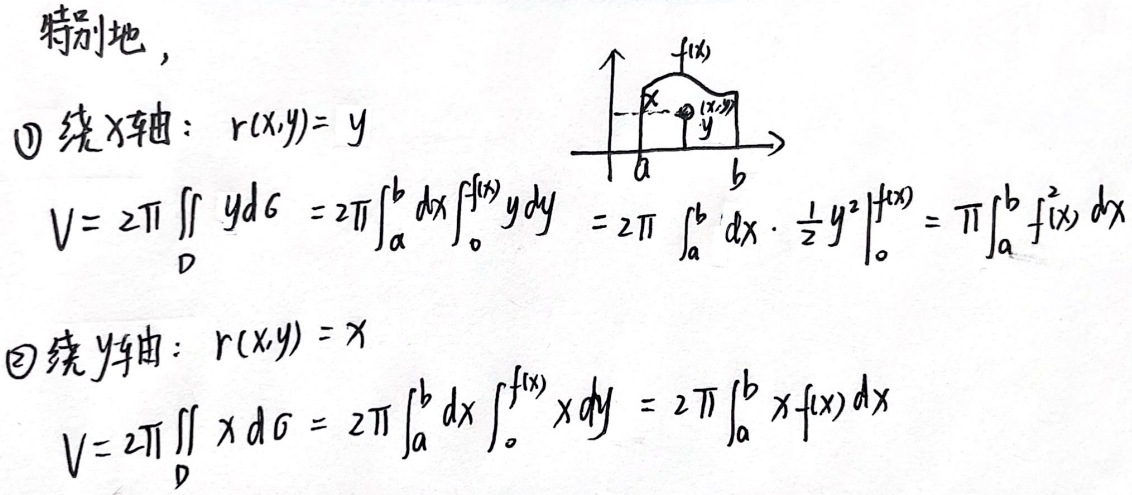 特别地，
f(x)
x (x,y)
y
a b
① 绕x轴： r(x,y) = y
V = 2π ∬_D y dσ = 2π ∫_a^b dx ∫_0^{f(x)} y dy = 2π ∫_a^b dx · 1/2 y² |_0^{f(x)} = π ∫_a^b f²(x) dx
② 绕y轴： r(x,y) = x
V = 2π ∬_D x dσ = 2π ∫_a^b dx ∫_0^{f(x)} x dy = 2π ∫_a^b x f(x) dx